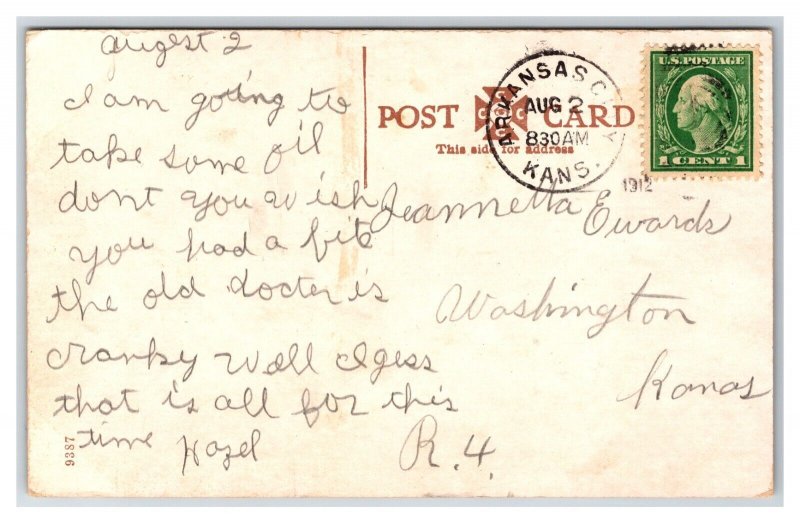 augest 2
I am going to
take some oil
dont you wish
you had a bite
the old docter is
cranky well I gess
that is all for this
time Hazel
9387
POST CARD
This side for address
ARKANSAS CITY
AUG 2
830AM
KANS.
U.S. POSTAGE
1 CENT 1
1912
Jeannetta Ewards
Washington
Kanas
R. 4.